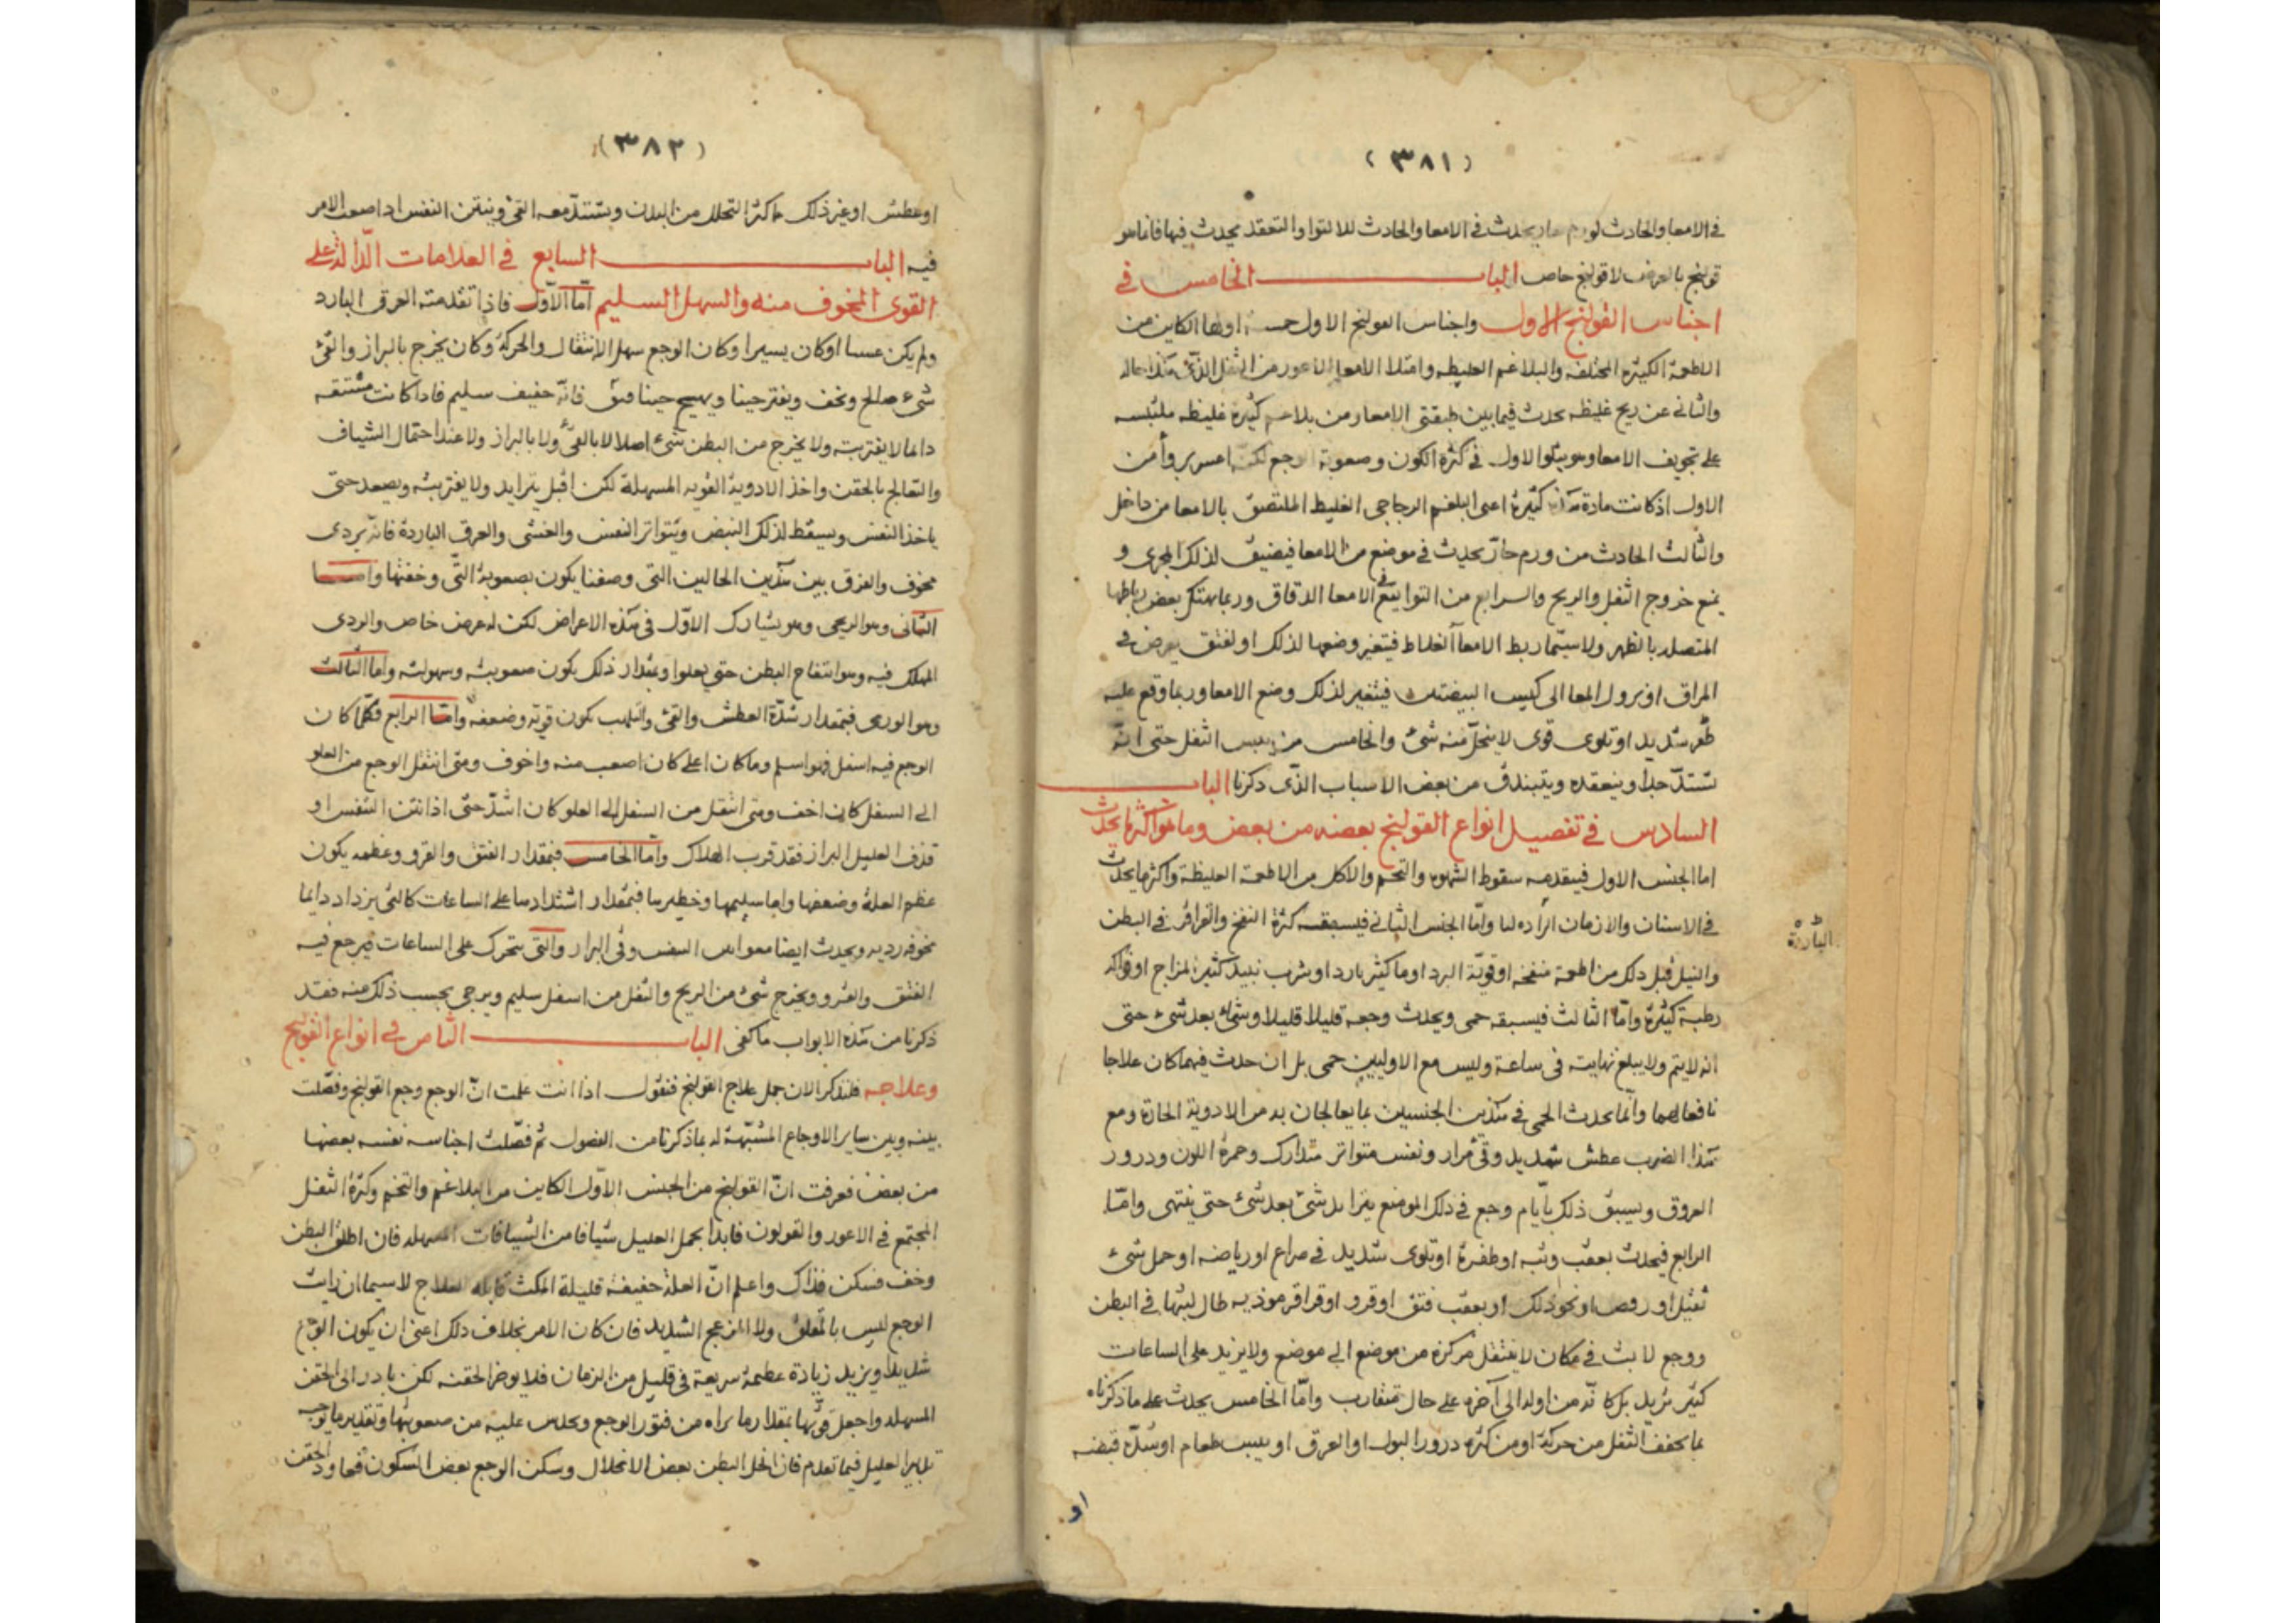 (٣٨١)
في الامعا والحادث لورم حار يحدث في الامعا والحادث للالتوا والتعقد يحدث فيها فانما هو
قولنج بالعرض لا قولنج خاص الباب الخامس في
اجناس القولنج الاول واجناس القولنج الاول خمسة اولها الكاين من
الاطعمة الكثيرة المختلفة والبلاغم الغليظه وامتلا الامعا الاعور من الثفل الذي هذا حاله
والثاني عن ريح غليظه تحدث فيما بين طبقتي الامعا ومن بلاغم كثيرة غليظه ملتبسه
على تجويف الامعا وهو يتلو الاول في كثرة الكون وصعوبة الوجع لكنه اعسر بروأ من
الاول اذ كانت مادة هذا كثيرة اعني البلغم الزجاجي الغليظ الملتصق بالامعا من داخل
والثالث الحادث من ورم حار يحدث في موضع من الامعا فيضيق لذلك المجرى و
يمنع خروج الثفل والريح والرابع من التوا يقع في الامعا الدقاق وربما يهتك بعض رباطها
المتصله بالظهر ولا سيما ربط الامعا الغلاظ فيتغير وضعها لذلك او لفتق يعرض في
المراق او نزول المعا الى كيس البيضتين فيتغير لذلك وضع الامعا وربما وقع عليه
شديد او تلوى قوى لا ينحل منه شئ والخامس من يبس الثفل حتى انه
يشتد جدا وينعقده ويتبندق من بعض الاسباب الذي ذكرنا الباب
السادس في تفصيل انواع القولنج بعضه من بعض وما هو اكثرها يحدث
اما الجنس الاول فيتقدمه سقوط الشهوه والتخم والاكل من الاطعمة الغليظة واكثر ما يحدث
في الاسنان والازمان الباردة واما الجنس الثاني فيسبقه كثرة النفخ والقراقر في البطن
والنيل قبل ذلك من اطعمة منفخه او قوية البرد او ما كثير بارد او شرب نبيد كثير المزاج او فواكه
رطبة كثيرة واما الثالث فيسبقه حمى ويحدث وجعه قليلا قليلا وشئ بعد شئ حتى
انه لا يتم ولا يبلغ نهايته في ساعة وليس مع الاوليين حمى بل ان حدث فيهما كان علاجا
نافعا لهما وانما يحدث الحمى في هذين الجنسين بما يعالجان به من الادوية الحارة ومع
هذا الضرب عطش شديد وقئ مرار ونفس متواتر متدارك وحمرة اللون ودرور
العروق ويسبق ذلك بايام وجع في ذلك الموضع يتزايد شئ بعد شئ حتى ينتهى واما
الرابع فيحدث بعقب وثبه او طفرة او تلوى شديد في صراع او رياضه او حمل شئ
ثقيل او روص او نحو ذلك او بعقب فتق او قرو او قراقر موذيه طال لبثها في البطن
ووجع لابث في مكان لا ينتقل مركزه من موضع الى موضع ولا يزيد على الساعات
كثير تزيد بل كانه من اوله الى آخره على حال متقارب واما الخامس يحدث على ما ذكرناه
بما يجفف الثفل من حركة او من كثرة درور البول او العرق او يبس طعام او شدة قبضه
او
البارده
(٣٨٢)
او عطش او غير ذلك ما كثر التحلل من البدن ويشتد معه القئ وينتن النفس اذا صعب الامر
فيه الباب السابع في العلامات الدالة على
القوى المخوف منه والسهل السليم اما الاول فاذا تقدمته العرق البارد
ولم يكن عسيرا او كان يسيرا وكان الوجع سهل الانتقال والحركة وكان يخرج بالبراز والقئ
شئ صالح ونخف ويفتر حينا ويهيج حينا فانه خفيف سليم فاذا كانت
داعا لا يفتر بته ولا يخرج من البطن شئ اصلا لا بالقئ ولا بالبراز ولا عند احتمال الشياف
والتعالج بالحقن واخذ الادوية القويه المسهلة لكن اقبل يتزايد ولا يفتر بته ويصعد حتى
ياخذ النفس ويسقط لذلك النبض ويتواتر النفس والغشى والعرق الباردة فانه يردى
مخوف والفرق بين هذين الحالين التى وصفنا يكون بصعوبة التي وخفتها واما
الثاني وهو الريحى وهو يشارك الاول في هذه الاعراض لكن له عرض خاص والردى
المهلك فيه وهو انتفاخ البطن حتى يعلوا وبمقدار ذلك يكون صعوبته وسهولته واما الثالث
وهو الورمى فبمقدار شدة العطش والقئ والتلهب يكون قوته وضعفه واما الرابع فكلما كان
الوجع فيه اسفل فهو اسلم وما كان اعلى كان اصعب منه واخوف ومتى انتقل الوجع من العلو
الى السفل كان اخف ومتى انتقل من السفل الى العلو كان اشد حتى اذا نتن النفس او
قذف العليل البراز فقد قرب الهلاك واما الخامس فبمقدار الفتق والقرو وعظمه يكون
عظم العلة وضعفها واما سليمها وخطيرها فبمقدار اشتدادها على الساعات كالتى يزداد دايما
مخوفه رديه ويحدث ايضا معها نتن النفس وقئ البراز والتى تتحرك على الساعات فيرجع فيه
الفتق والقرو ويخرج شئ من الريح والثفل من اسفل سليم ويرجى بحسب ذلك منه فقد
ذكرنا من هذه الابواب ما كفى الباب الثامن في انواع القولنج
وعلاجه فلنذكر الان جمل علاج القولنج فنقول اذا انت علمت ان الوجع وجع القولنج وفصلت
بينه وبين ساير الاوجاع المشبهة له بما ذكرنا من الفصول ثم فصلت اجناسه نفسه بعضها
من بعض فعرفت ان القولنج من الجنس الاول الكاين من البلاغم والتخم وكثرة الثفل
المجتمع في الاعور والقولون فابدا بحمل العليل شيافا من الشيافات المسهله فان اطلق البطن
وخف فسكن فذاك واعلم ان العلة خفيفة قليلة المكث قابله للعلاج لا سيما ان رايت
الوجع ليس بالمقلق ولا المزعج الشديد فان كان الامر بخلاف ذلك اعنى ان يكون الوجع
شديدا ويزيد زيادة عظيمة سريعة في قليل من الزمان فلا يوخر الحقنه لكن بادر الى الحقن
المسهله واجعل قوتها بمقدار ما تراه من فتور الوجع وتحدس عليه من صعوبتها وتقدير ما يوجبه
تدبير العليل فيما تقدم فان انحل البطن بعض الانحلال وسكن الوجع بعض السكون فعاود الحقن